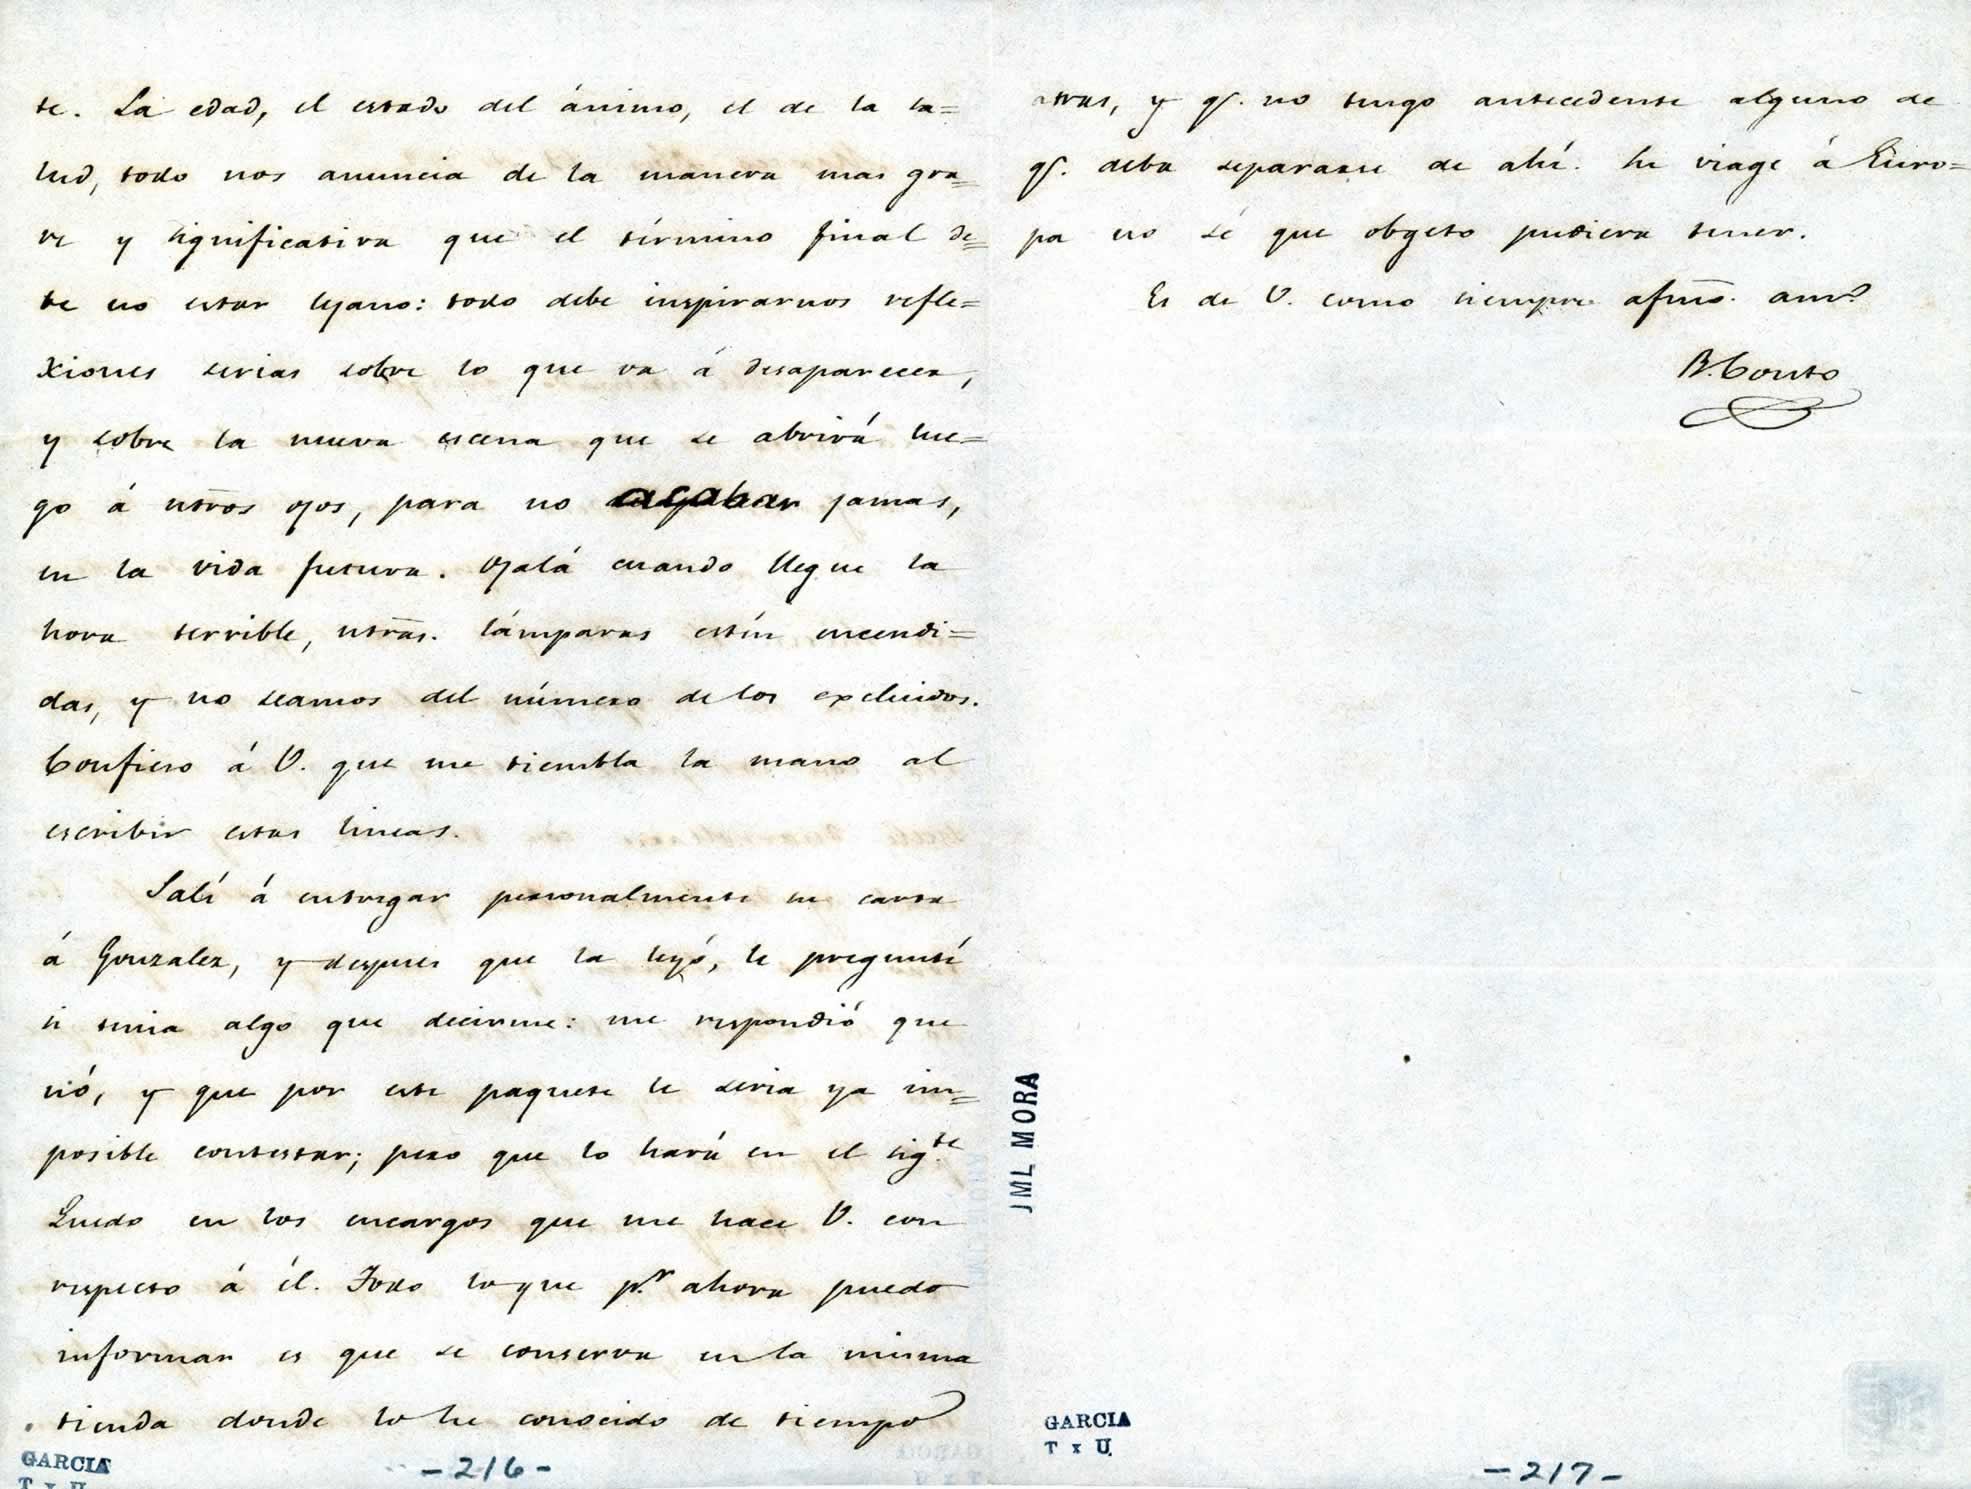 te. La edad, el estado del ánimo, el de la sa=
lud, todo nos anuncia de la manera mas gra=
ve y significativa que el término final de=
be no estar lejano: todo debe inspirarnos refle=
xiones serias sobre lo que va á desaparecer,
y sobre la nueva escena que se abrirá lue=
go á ntros ojos, para no acabar jamas,
en la vida futura. Ojalá cuando llegue la
hora terrible, ntras. lámparas estén encendi=
das, y no seamos del número de los excluidos.
Confieso á V. que me tiembla la mano al
escribir estas lineas.
Salí á entregar personalmente su carta
á Gonzalez, y despues que la leyó, le pregunté
si tenia algo que decirme: me respondió que
nó, y que por este paquete le seria ya im=
posible contestar; pero que lo hará en el sigte.
Quedo en los encargos que me hace V. con
respecto á él. Todo lo que pr. ahora puedo
informar es que se conserva en la misma
tienda donde lo he conocido de tiempo
GARCIA
T x U
-216-
atras, y q. no tengo antecedente alguno de
q. deba separarse de ahí. Su viage á Euro=
pa no sé que obgeto pudiera tener.
Es de V. como siempre afmo. amo.
B. Couto
JML MORA
GARCIA
T x U.
-217-